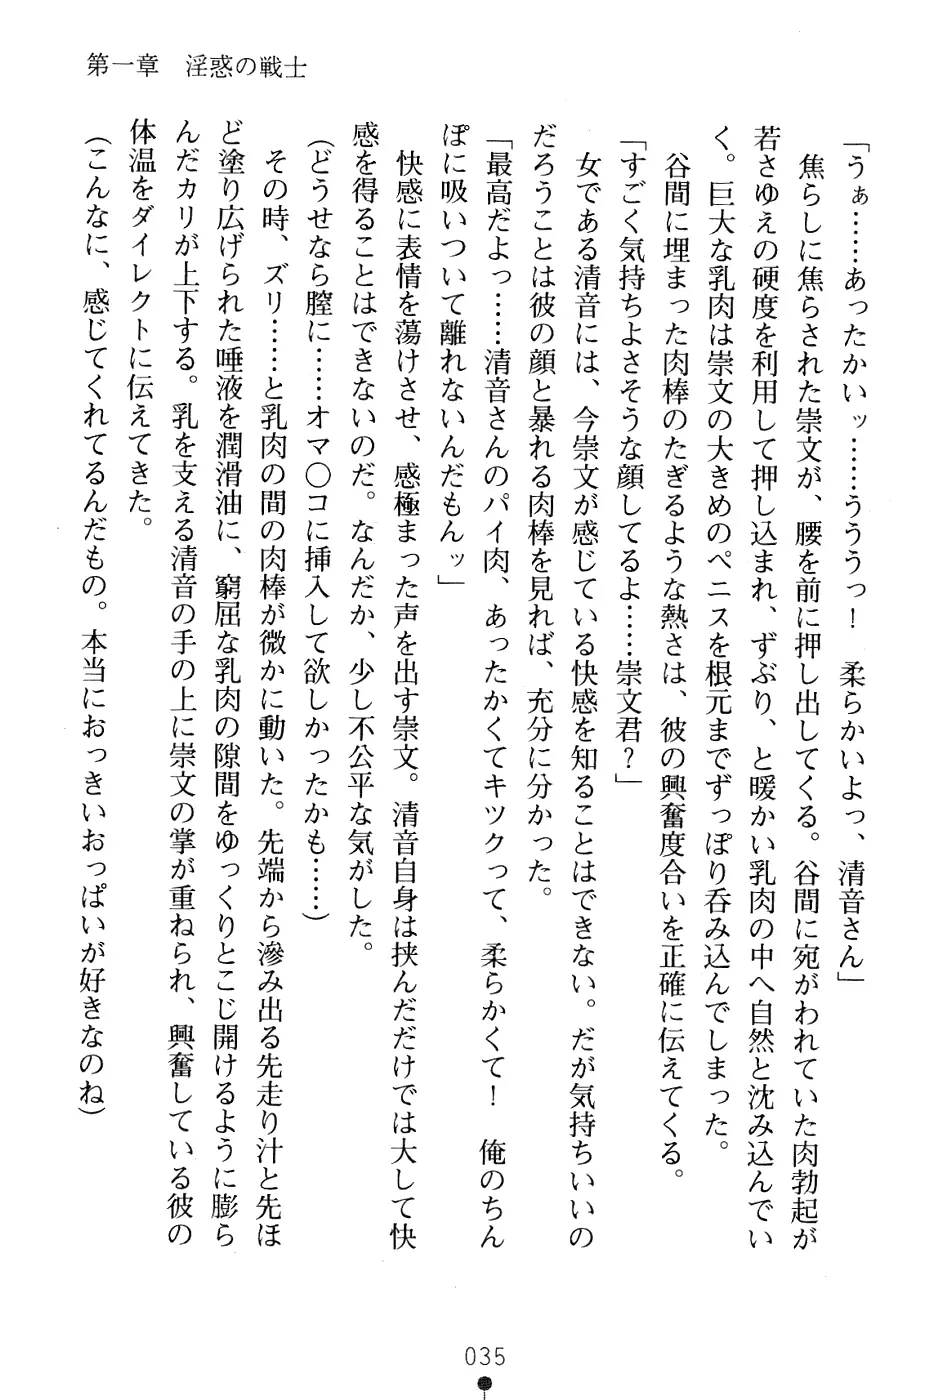 第一章　淫惑の戦士
「うぁ……あったかいッ……ううっ！　柔らかいよっ、清音さん」
　焦らしに焦らされた崇文が、腰を前に押し出してくる。谷間に宛がわれていた肉勃起が
若さゆえの硬度を利用して押し込まれ、ずぶり、と暖かい乳肉の中へ自然と沈み込んでい
く。巨大な乳肉は崇文の大きめのペニスを根元までずっぽり呑み込んでしまった。
　谷間に埋まった肉棒のたぎるような熱さは、彼の興奮度合いを正確に伝えてくる。
「すごく気持ちよさそうな顔してるよ……崇文君？」
　女である清音には、今崇文が感じている快感を知ることはできない。だが気持ちいいの
だろうことは彼の顔と暴れる肉棒を見れば、充分に分かった。
「最高だよっ……清音さんのパイ肉、あったかくてキツクって、柔らかくて！　俺のちん
ぽに吸いついて離れないんだもんッ」
　快感に表情を蕩けさせ、感極まった声を出す崇文。清音自身は挟んだだけでは大して快
感を得ることはできないのだ。なんだか、少し不公平な気がした。
（どうせなら膣に……オマ〇コに挿入して欲しかったかも……）
　その時、ズリ……と乳肉の間の肉棒が微かに動いた。先端から滲み出る先走り汁と先ほ
ど塗り広げられた唾液を潤滑油に、窮屈な乳肉の隙間をゆっくりとこじ開けるように膨ら
んだカリが上下する。乳を支える清音の手の上に崇文の掌が重ねられ、興奮している彼の
体温をダイレクトに伝えてきた。
（こんなに、感じてくれてるんだもの。本当におっきいおっぱいが好きなのね）
035